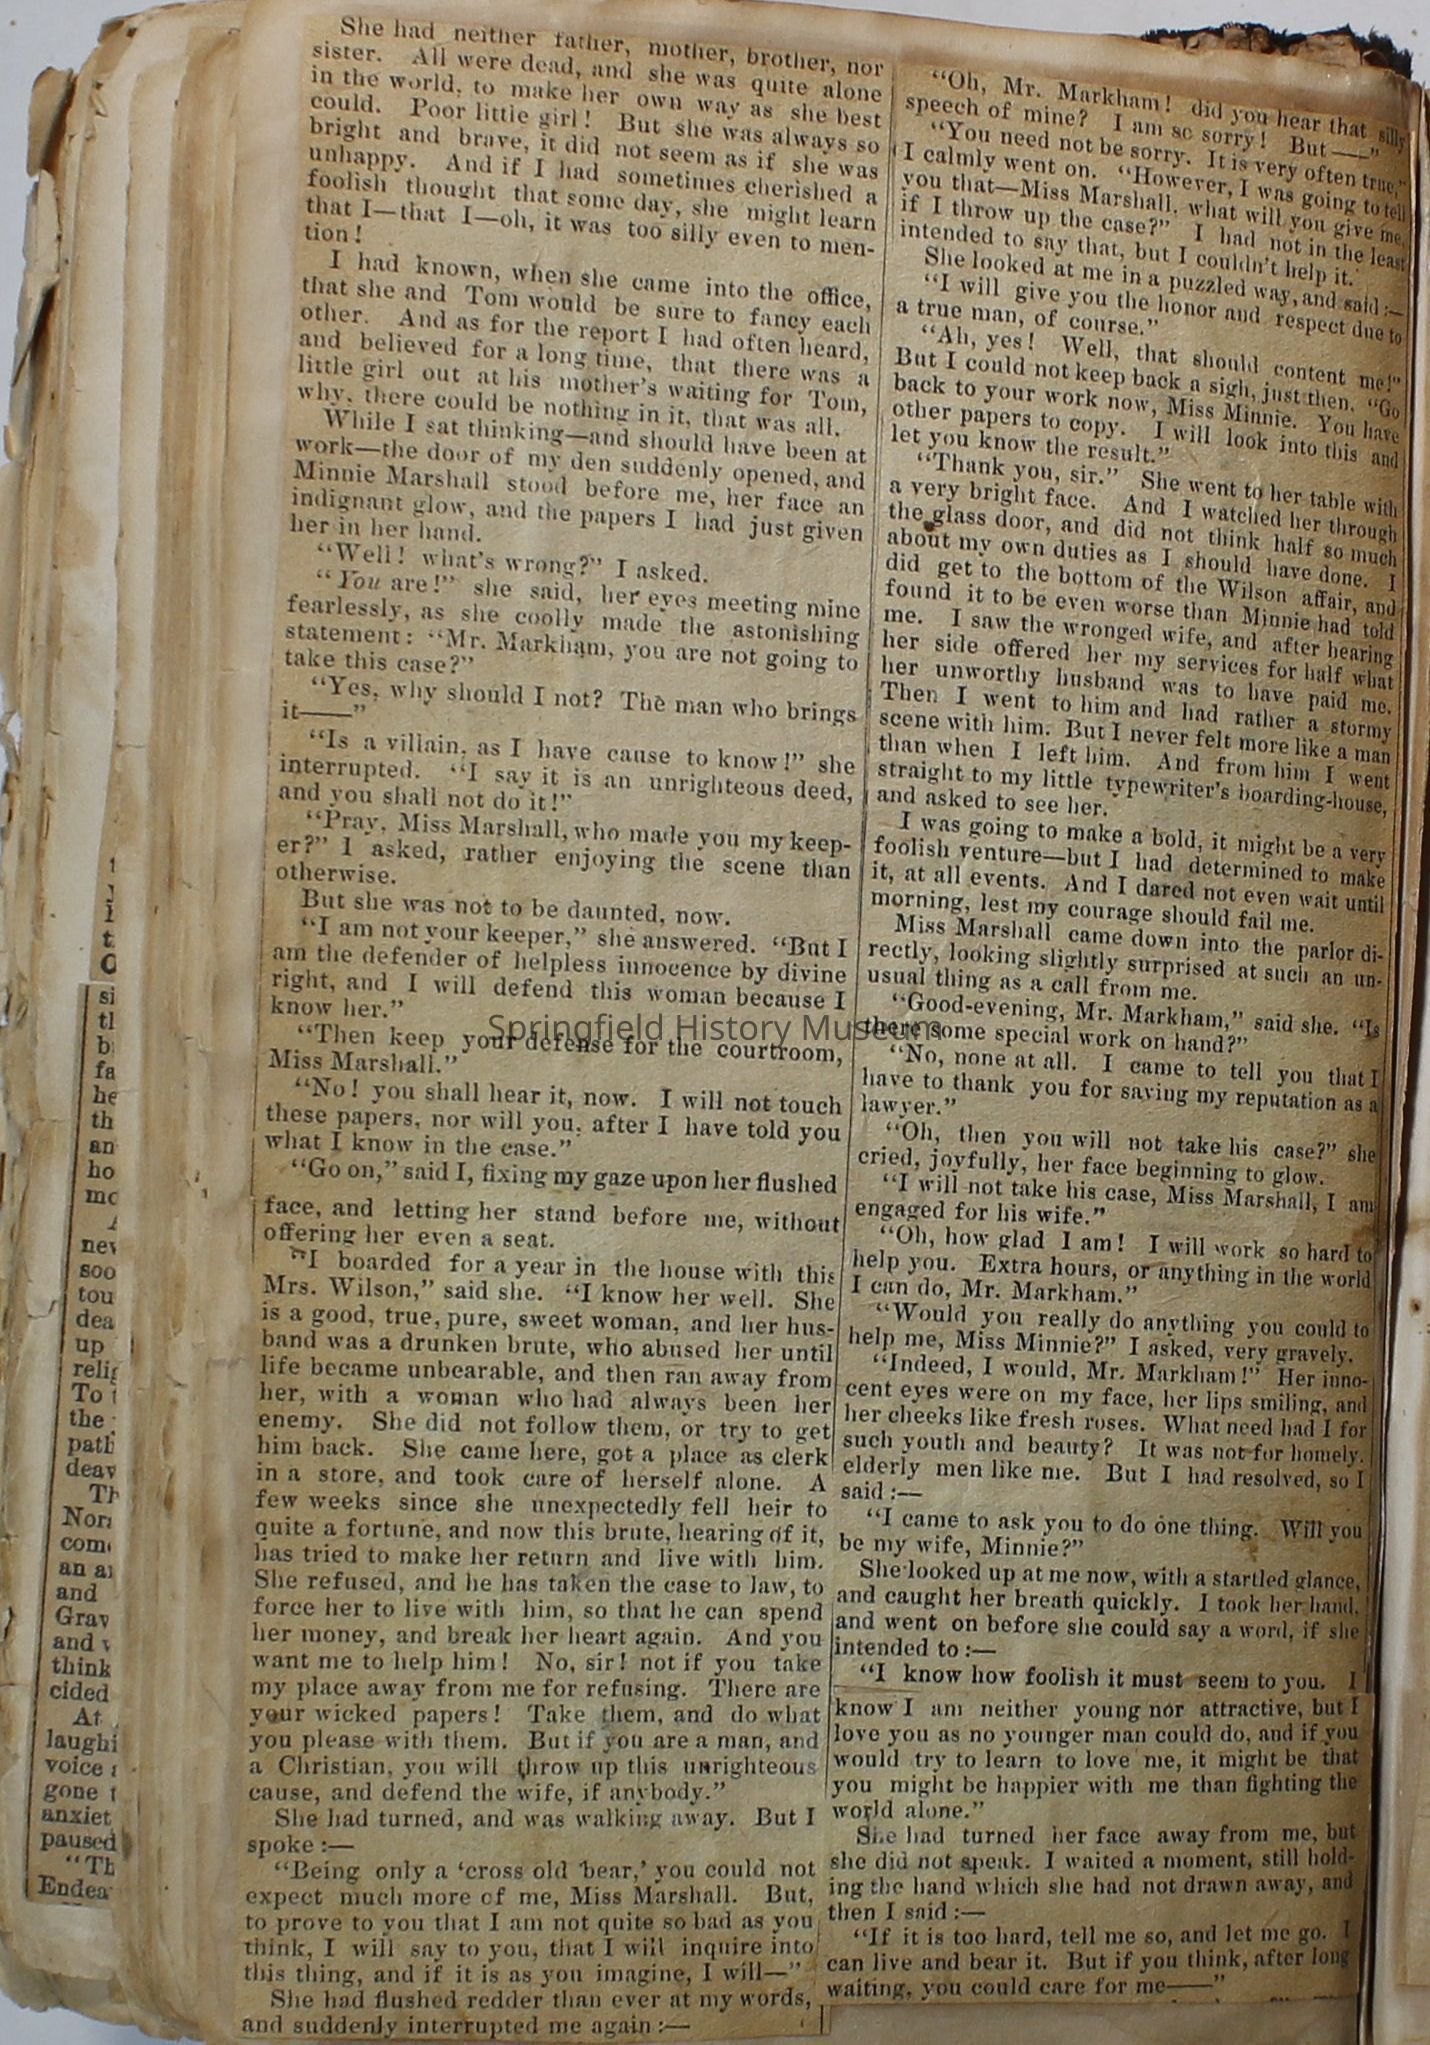 She had neither father, mother, brother, nor
sister. All were dead, and she was quite alone
in the world, to make her own way as she best
could. Poor little girl! But she was always so
bright and brave, it did not seem as if she was
unhappy. And if I had sometimes cherished a
foolish thought that some day, she might learn
that I—that I—oh, it was too silly even to men-
tion!
I had known, when she came into the office,
that she and Tom would be sure to fancy each
other. And as for the report I had often heard,
and believed for a long time, that there was a
little girl out at his mother's waiting for Tom,
why, there could be nothing in it, that was all.
While I sat thinking—and should have been at
work—the door of my den suddenly opened, and
Minnie Marshall stood before me, her face an
indignant glow, and the papers I had just given
her in her hand.
"Well! what's wrong?" I asked.
"You are!" she said, her eyes meeting mine
fearlessly, as she coolly made the astonishing
statement: "Mr. Markham, you are not going to
take this case?"
"Yes, why should I not? The man who brings
it——"
"Is a villain, as I have cause to know!" she
interrupted. "I say it is an unrighteous deed,
and you shall not do it!"
"Pray, Miss Marshall, who made you my keep-
er?" I asked, rather enjoying the scene than
otherwise.
But she was not to be daunted, now.
"I am not your keeper," she answered. "But I
am the defender of helpless innocence by divine
right, and I will defend this woman because I
know her."
"Then keep your defense for the courtroom,
Miss Marshall."
"No! you shall hear it, now. I will not touch
these papers, nor will you, after I have told you
what I know in the case."
"Go on," said I, fixing my gaze upon her flushed
face, and letting her stand before me, without
offering her even a seat.
"I boarded for a year in the house with this
Mrs. Wilson," said she. "I know her well. She
is a good, true, pure, sweet woman, and her hus-
band was a drunken brute, who abused her until
life became unbearable, and then ran away from
her, with a woman who had always been her
enemy. She did not follow them, or try to get
him back. She came here, got a place as clerk
in a store, and took care of herself alone. A
few weeks since she unexpectedly fell heir to
quite a fortune, and now this brute, hearing of it,
has tried to make her return and live with him.
She refused, and he has taken the case to law, to
force her to live with him, so that he can spend
her money, and break her heart again. And you
want me to help him! No, sir! not if you take
my place away from me for refusing. There are
your wicked papers! Take them, and do what
you please with them. But if you are a man, and
a Christian, you will throw up this unrighteous
cause, and defend the wife, if anybody."
She had turned, and was walking away. But I
spoke:—
"Being only a 'cross old bear,' you could not
expect much more of me, Miss Marshall. But,
to prove to you that I am not quite so bad as you
think, I will say to you, that I will inquire into
this thing, and if it is as you imagine, I will—"
She had flushed redder than ever at my words,
and suddenly interrupted me again:—
"Oh, Mr. Markham! did you hear that silly
speech of mine? I am so sorry! But——"
"You need not be sorry. It is very often true,"
I calmly went on. "However, I was going to tell
you that—Miss Marshall, what will you give me,
if I throw up the case?" I had not in the least
intended to say that, but I couldn't help it.
She looked at me in a puzzled way, and said:—
"I will give you the honor and respect due to
a true man, of course."
"Ah, yes! Well, that should content me!"
But I could not keep back a sigh, just then. "Go
back to your work now, Miss Minnie. You have
other papers to copy. I will look into this and
let you know the result."
"Thank you, sir." She went to her table with
a very bright face. And I watched her through
the glass door, and did not think half so much
about my own duties as I should have done. I
did get to the bottom of the Wilson affair, and
found it to be even worse than Minnie had told
me. I saw the wronged wife, and after hearing
her side offered her my services for half what
her unworthy husband was to have paid me.
Then I went to him and had rather a stormy
scene with him. But I never felt more like a man
than when I left him. And from him I went
straight to my little typewriter's boarding-house,
and asked to see her.
I was going to make a bold, it might be a very
foolish venture—but I had determined to make
it, at all events. And I dared not even wait until
morning, lest my courage should fail me.
Miss Marshall came down into the parlor di-
rectly, looking slightly surprised at such an un-
usual thing as a call from me.
"Good-evening, Mr. Markham," said she. "Is
there some special work on hand?"
"No, none at all. I came to tell you that I
have to thank you for saving my reputation as a
lawyer."
"Oh, then you will not take his case?" she
cried, joyfully, her face beginning to glow.
"I will not take his case, Miss Marshall, I am
engaged for his wife."
"Oh, how glad I am! I will work so hard to
help you. Extra hours, or anything in the world
I can do, Mr. Markham."
"Would you really do anything you could to
help me, Miss Minnie?" I asked, very gravely.
"Indeed, I would, Mr. Markham!" Her inno-
cent eyes were on my face, her lips smiling, and
her cheeks like fresh roses. What need had I for
such youth and beauty? It was not for homely,
elderly men like me. But I had resolved, so I
said:—
"I came to ask you to do one thing. Will you
be my wife, Minnie?"
She looked up at me now, with a startled glance,
and caught her breath quickly. I took her hand,
and went on before she could say a word, if she
intended to:—
"I know how foolish it must seem to you. I
know I am neither young nor attractive, but I
love you as no younger man could do, and if you
would try to learn to love me, it might be that
you might be happier with me than fighting the
world alone."
She had turned her face away from me, but
she did not speak. I waited a moment, still hold-
ing the hand which she had not drawn away, and
then I said:—
"If it is too hard, tell me so, and let me go. I
can live and bear it. But if you think, after long
waiting, you could care for me——"
Springfield History Museum
si
tl
b
fa
he
th
an
ho
mo
nev
soo
tou
dea
up
relig
To t
the
path
deav
Th
Nor
com
an a
and
Grav
and
think
cided
At
laughi
voice
gone t
anxiet
paused
"Th
Endea